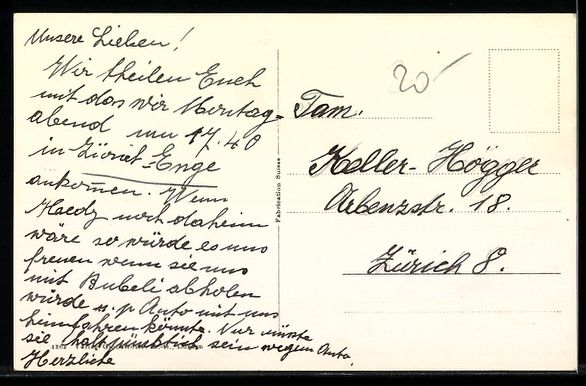 Unsere Lieben!
Wir theilen Euch
mit das wir Montag-
abend um 17.40
in Zürich-Enge
ankom̅en. Wenn
noch daheim
wäre so würde es uns
freuen wenn sie uns
mit Bubeli abholen
würde u. p Auto mit uns
heimfahren könnte. Nur müsste
sie halt pünktlich sein wegem Auto.
Herzliche
Fabrication Suisse
20
Fam.
Keller-Högger
Arbenzstr. 18.
Zürich 8.